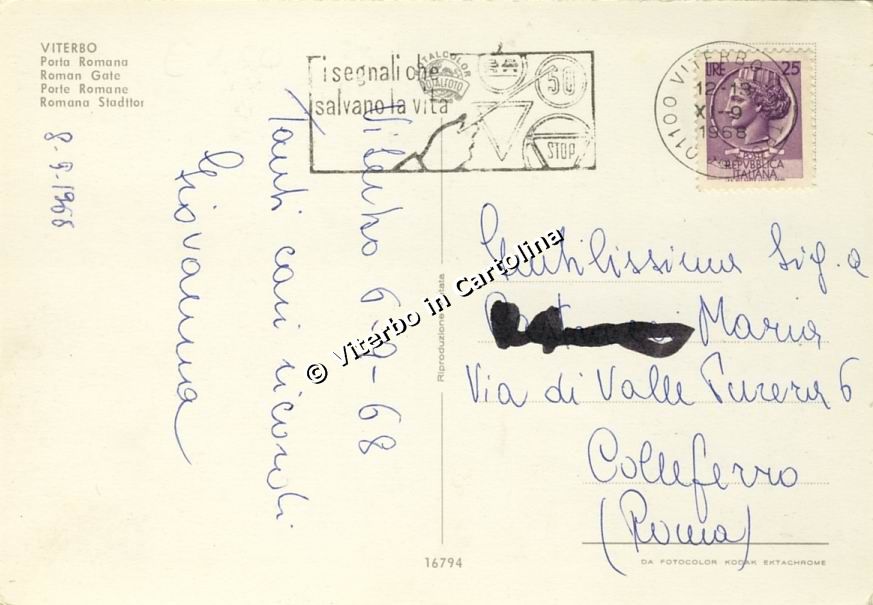 VITERBO
Porta Romana
Roman Gate
Porte Romane
Romana Stadttor
8-9-1968
Viterbo 6-9-68
Tanti cari ricordi
Giovanna
ITALCOLOR
ROTALFOTO
i segnali che
salvano la vita
50
STOP
01100 VITERBO
12-13
XI-9
1968
LIRE 25
POSTE
REPVBBLICA
ITALIANA
Gentilissima Sig.a
Maria
Via di Valle Purera 6
Colleferro
(Roma)
Riproduzione vietata
© Viterbo in Cartolina
16794
DA FOTOCOLOR KODAK EKTACHROME